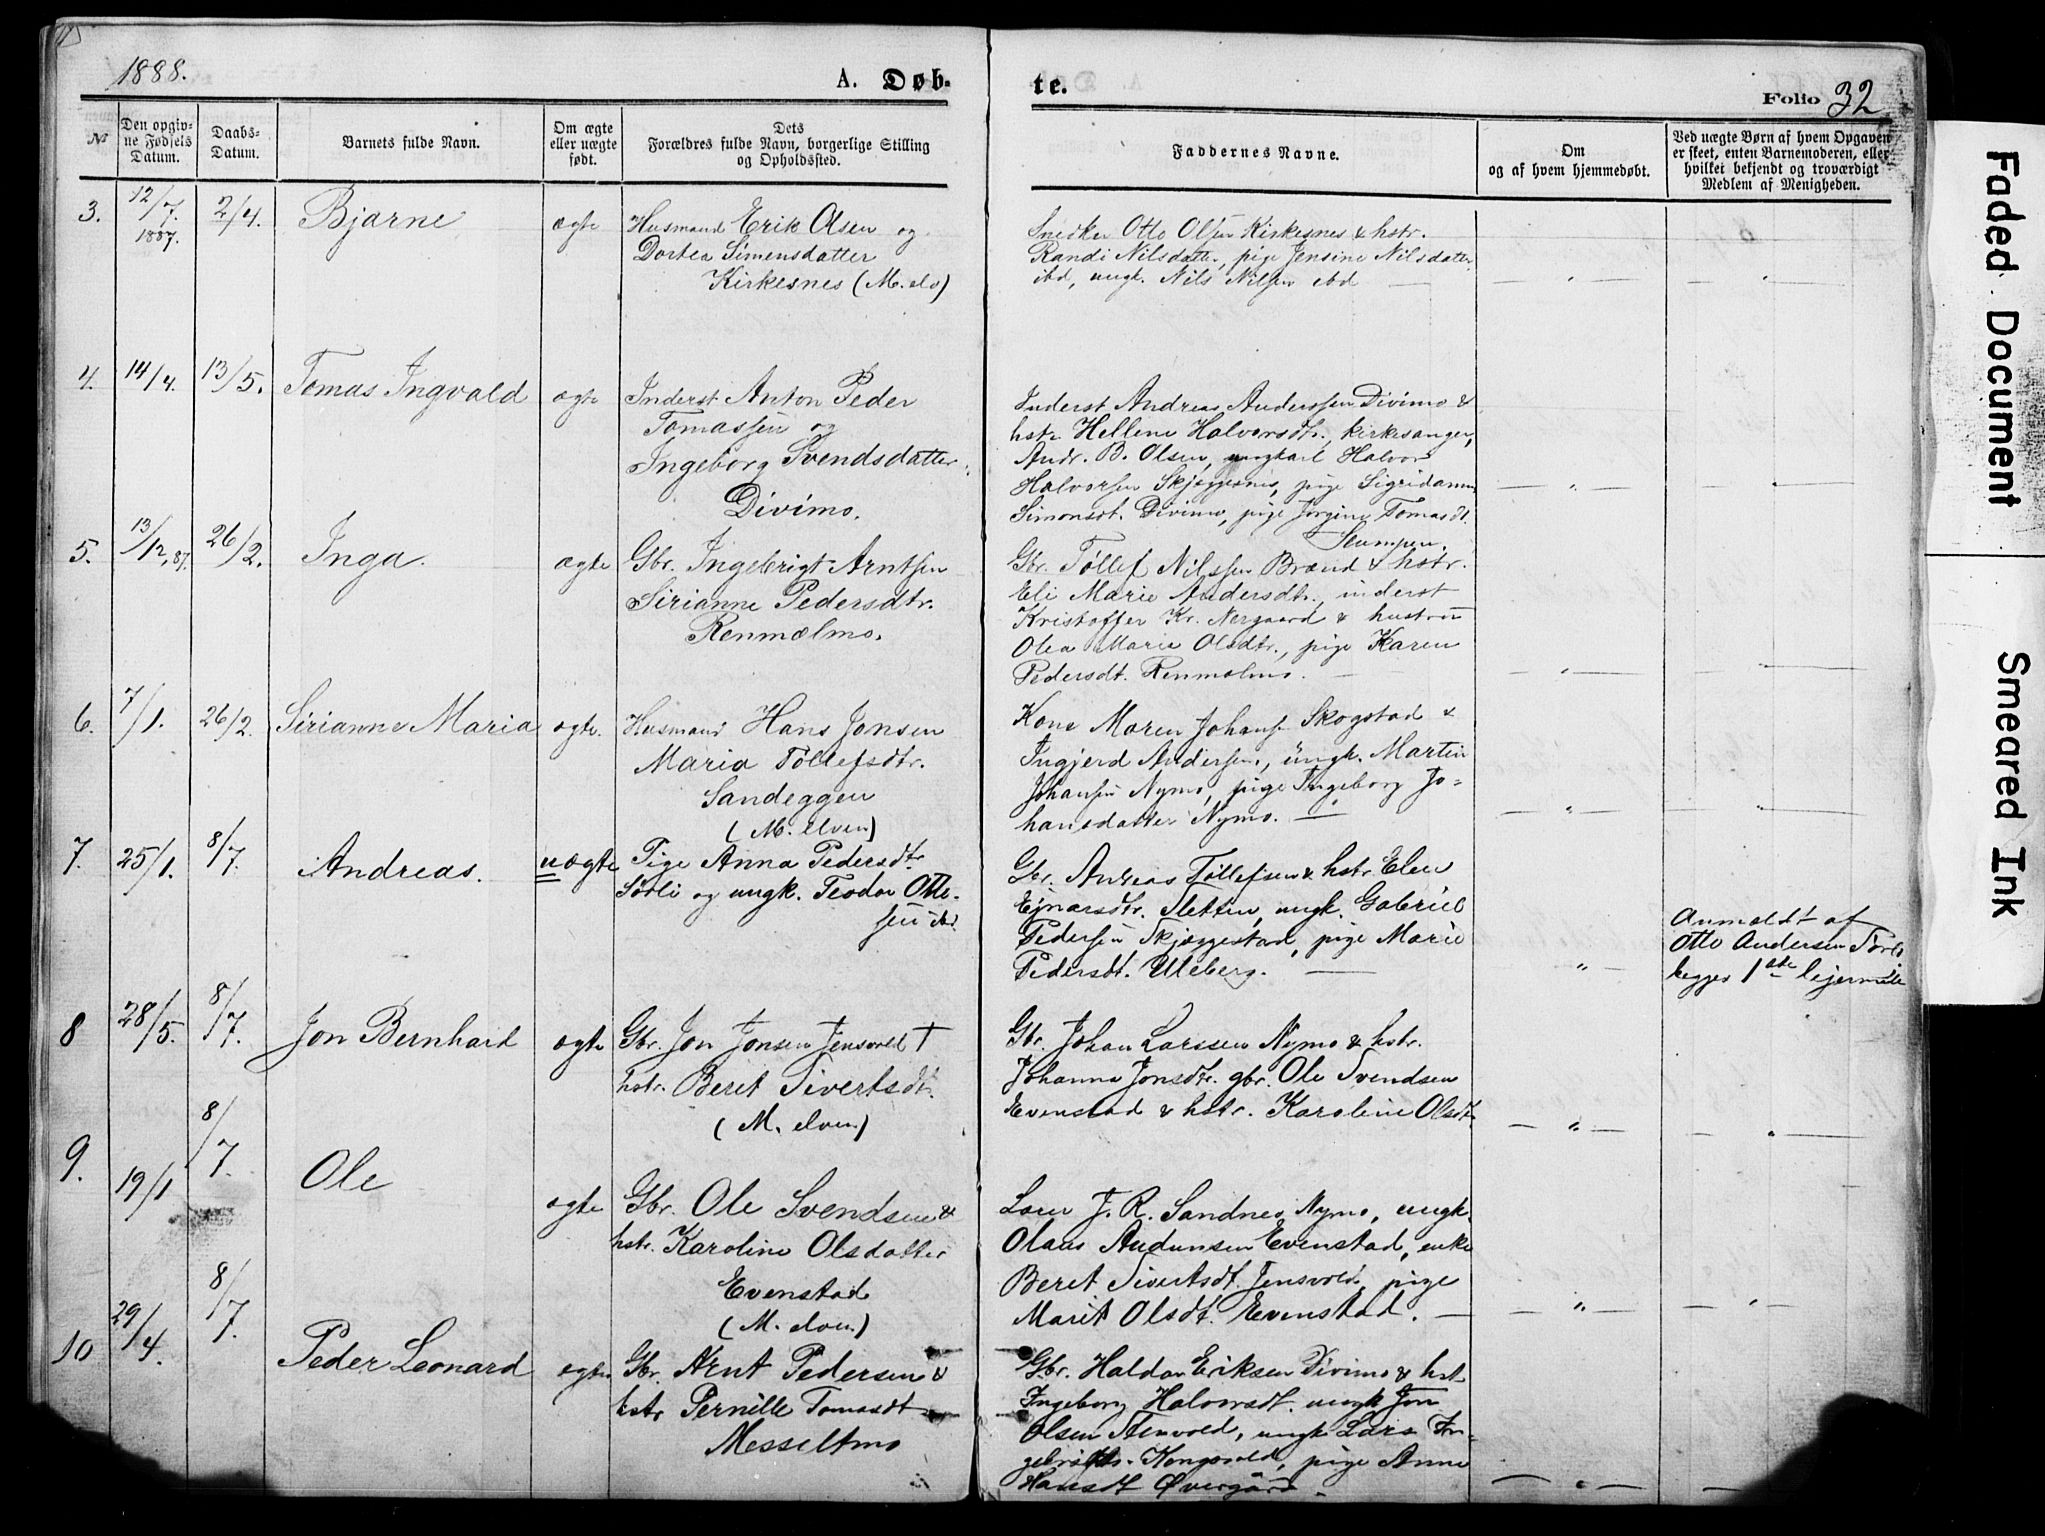 1888.
A. Døb-
te.
Folio 32
№
Den opgiv-
ne Fødsels
Datum.
Daabs-
Datum.
Barnets fulde Navn.
Om ægte
eller uægte
født.
Dets
Forældres fulde Navn, borgerlige Stilling
og Opholdssted.
Faddernes Navne.
Om
og af hvem hjemmedøbt.
Ved uægte Børn af hvem Opgaven
er skeet, enten Barnemoderen, eller
hvilket bekjendt og troværdigt
Medlem af Menigheden.
3.
12/7.
1887.
2/4.
Bjarne
ægte
Husmand Erik Olsen og
Dortea Simensdatter
Kirkesnes (M. elv)
Snedker Otto Olsen Kirkesnes & hstr.
Randi Nilsdatter, pige Jensine Nilsdatter
ibd, ungk. Nils Nilsen ibd —
— " —
— " —
4.
14/4.
13/5.
Tomas Ingvald
ægte
Inderst Anton Peder
Tomassen og
Ingeborg Svendsdatter
Divimo.
Inderst Andreas Anderssen Divimo &
hstr Hellene Halvorsdtr., kirkesanger,
Andr. B. Olsen, ungkarl Halvor
Halvorsen Skjeggesnes, pige Sigridanna
Simonsdt. Divimo, pige Jørgine Tomasdt.
Stumpen.
— " —
— " —
5.
13/12, 87.
26/2.
Inga.
ægte
Gbr. Ingebrigt Arntsen
Sirianne Pedersdtr.
Renmælmo.
Gbr. Tøllef Nilssen Brænd & hstr.
Eli Marie Andersdtr., inderst
Kristoffer Kr. Nergaard & hustru
Olea Marie Olsdtr., pige Karen
Pedersdt. Renmælmo. —
— " —
— " —
6.
7/1.
26/2.
Sirianne Maria
ægte.
Husmand Hans Jonsen
Maria Tollefsdtr.
Sandeggen
(M. elven)
Kone Maren Johans Skogstad &
Ingjerd Andersen, ungk. Martin
Johansen Nymo, pige Ingeborg Jo-
hansdatter Nymo. —
— " —
— " —
7.
25/1.
8/7.
Andreas.
uægte
Pige Anna Pedersdtr
Sørli og ungk. Teodor Otte-
sen ibd.
Gbr. Andreas Tøllefsen & hstr. Elen
Ejnarsdtr. Sletten, ungk. Gabriel
Pedersen Skjæggestad, pige Marie
Pedersdt. Uleberg. —
— " —
Anmeldt af
Otto Andersen Sørli
begges 1ste lejermaal
8
28/5.
8/7.
Jon Bernhard
ægte
Gbr. Jon Jonsen Jensvold †
hstr. Beret Sivertsdt.
(M. elven)
Gbr. Johan Larssen Nymo & hstr.
Johanna Jonsdtr. gbr. Ole Svendsen
Evenstad & hstr. Karoline Olsdt.
— " —
— " —
9.
19/1
8/7.
Ole
ægte
Gbr. Ole Svendsen &
hstr. Karoline Olsdatter
Evenstad
(M. elven)
J. R. Sandnes Nymo, ungk.
Olaus Audunsen Evenstad, enke
Beret Sivertsdt. Jensvold, pige
Marit Olsdt. Evenstad. —
— " —
— " —
10
29/4.
8/7.
Peder Leonard
ægte
Gbr. Arnt Pedersen &
hstr Pernille Tomasdt
Messeltmo
Gbr. Haldor Eriksen Divimo & hst
Ingeborg Halvorsdt. ungk Jon
Olsen Stenvold, ungk Lars In-
gebrigts. Kongsvold, pige Anne
Hansdt Øvergård —
— " —
— " —
Faded Document
Smeared Ink